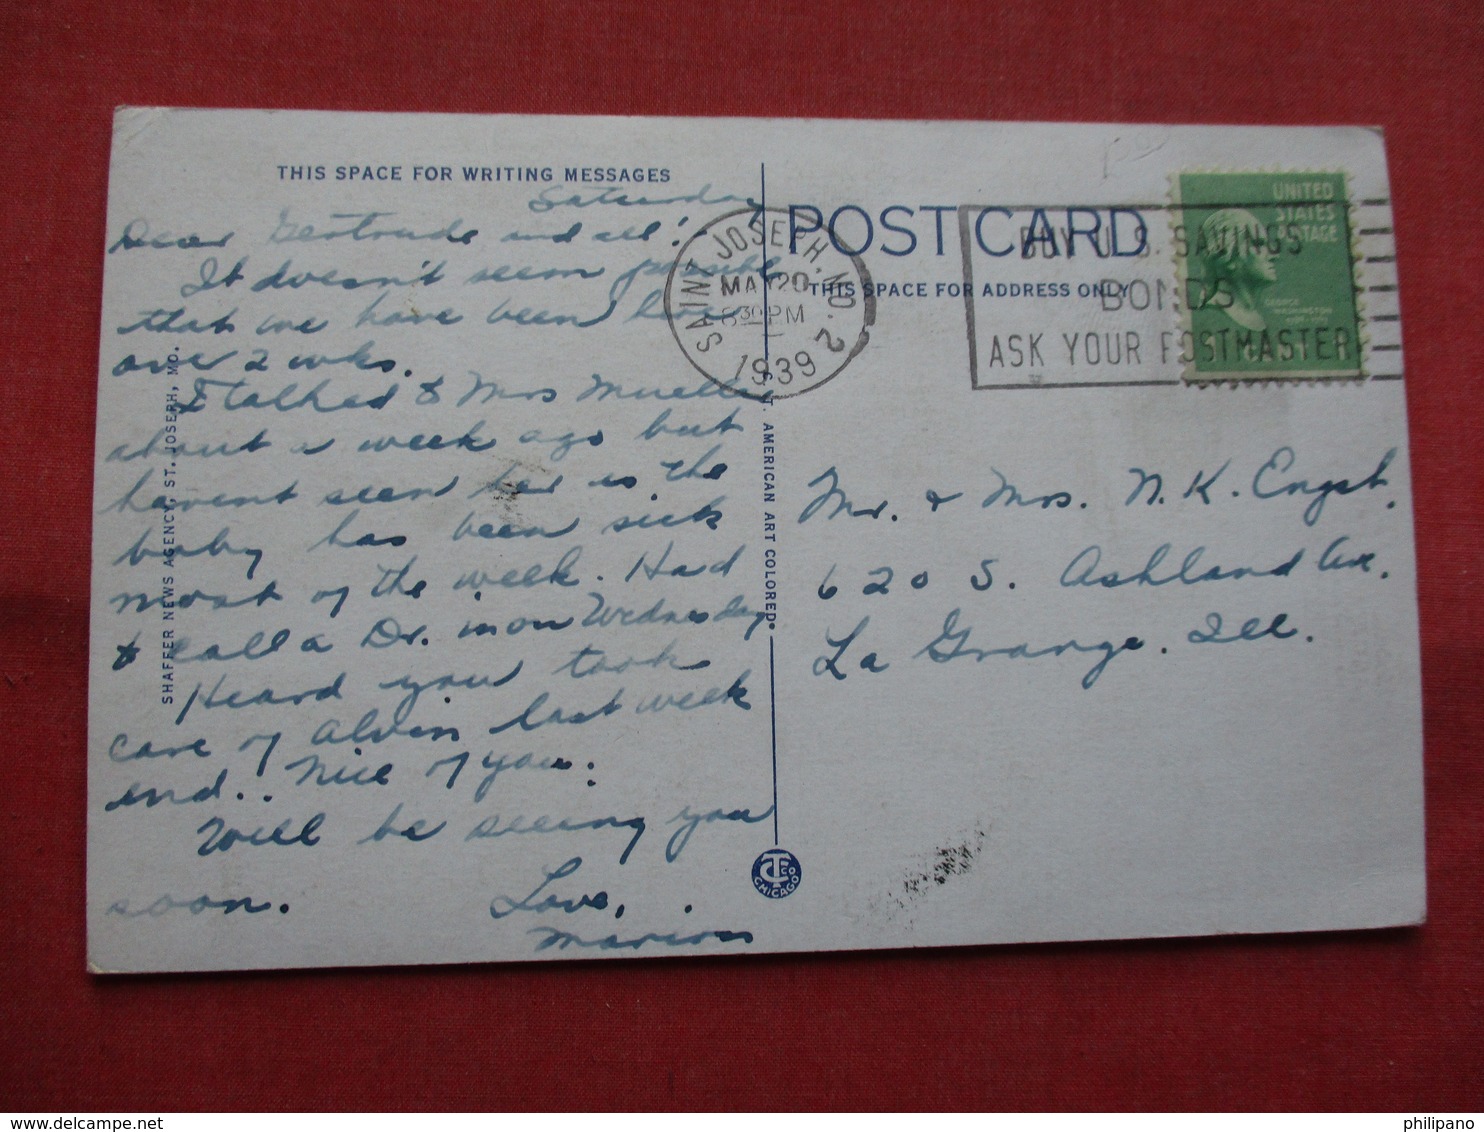 THIS SPACE FOR WRITING MESSAGES
Saturday
Dear Gertrude and all!
It doesn't seem possible
that we have been here
over 2 wks.
I talked to Mrs Mueller
about a week ago but
havent seen her is the
baby has been sick
most of the week. Had
to call a Dr. in on Wednesday
Heard you took
care of Alvin last week
end.. Nice of you.
Will be seeing you
soon. Love,
Marion
SHAFFER NEWS AGENCY, ST. JOSEPH, MO.
C. T. AMERICAN ART COLORED
CTCO CHICAGO
POST CARD
THIS SPACE FOR ADDRESS ONLY
SAINT JOSEPH, MO. 2
MAY 20
8 30 PM
1939
BUY U.S. SAVINGS
BONDS
ASK YOUR POSTMASTER
UNITED
STATES
POSTAGE
GEORGE
WASHINGTON
Mr. & Mrs. N. K. Engst.
620 S. Ashland Ave.
La Grange. Ill.
philipano